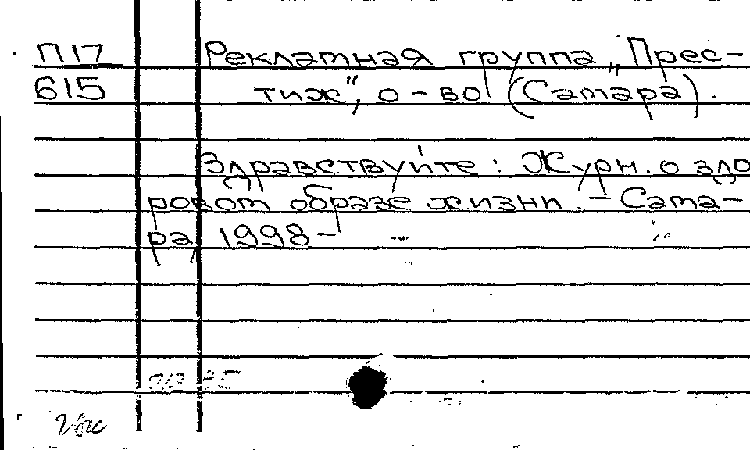 П17 Рекламная группа „Прес-
615 тиж", о-во (Самара).
Здравствуйте: Журн. о здо
ровом образе жизни. – Сама-
ра, 1998 –